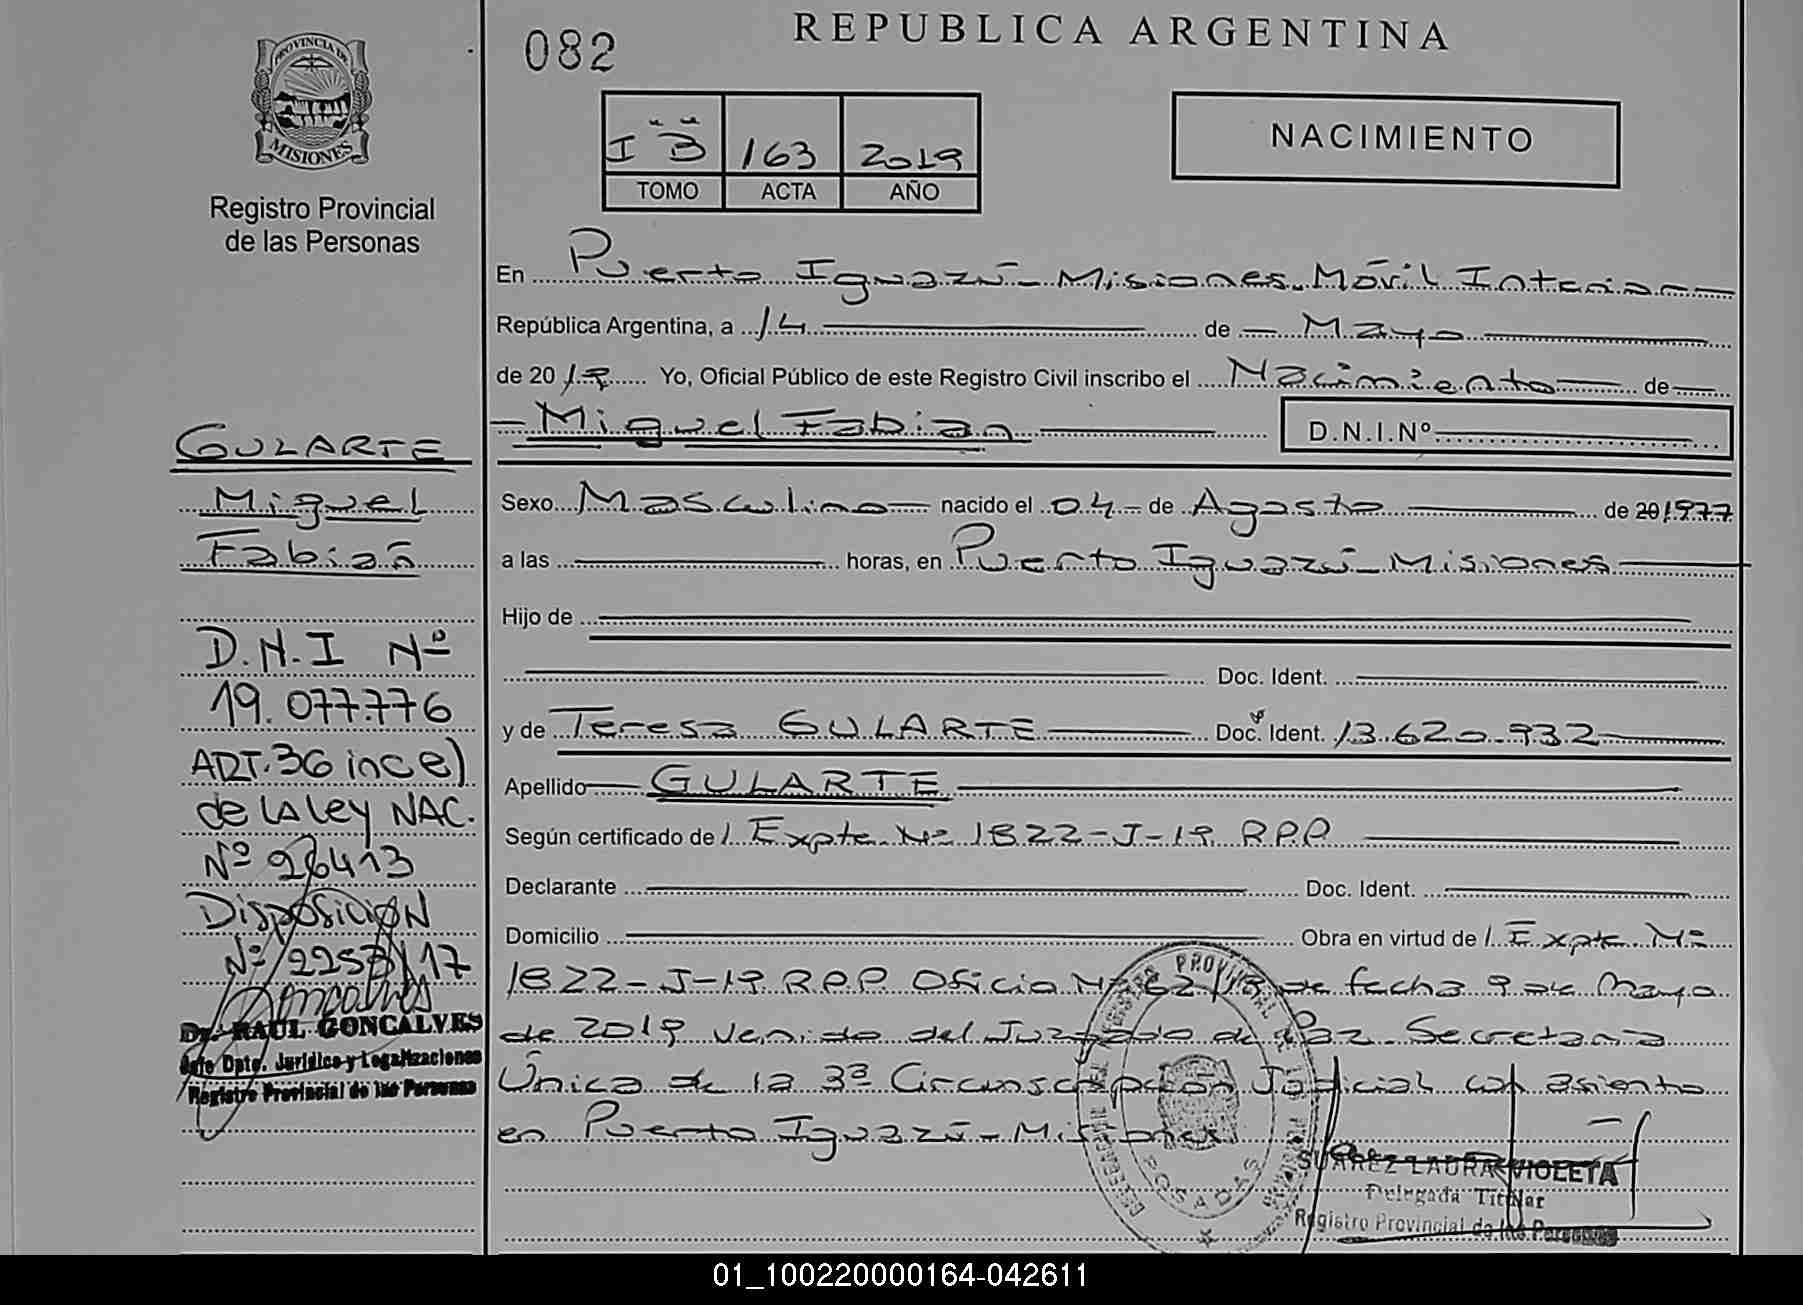 PROVINCIA DE
MISIONES
Registro Provincial
de las Personas
GULARTE
Miguel
Fabian
D.N.I Nº
19.077.776
ART. 36 inc e)
de LA Ley NAC.
Nº 26413
Disposición
Nº 2253/17
Dr. RAUL GONCALVES
Jefe Dpto. Jurídico y Legalizaciones
Registro Provincial de las Personas
082
REPUBLICA ARGENTINA
I "B" 163 2019
TOMO ACTA AÑO
NACIMIENTO
En Puerto Iguazú - Misiones. Móvil Interior
República Argentina, a 14 de Mayo
de 2019 Yo, Oficial Público de este Registro Civil inscribo el Nacimiento de
Miguel Fabian D.N.I.Nº
Sexo Masculino nacido el 04 de Agosto de 201977
a las horas, en Puerto Iguazú - Misiones
Hijo de
Doc. Ident.
y de Teresa GULARTE Doc. Ident. 13.620.932
Apellido GULARTE
Según certificado de Expte. Nº 1822-J-19 R.P.P
Declarante Doc. Ident.
Domicilio Obra en virtud de Expte Nº
1822-J-19 R.P.P Oficio Nº 62/19 de fecha 9 de Mayo
de 2019 venido del Juzgado de Paz Secretaria
Única de la 3ª Circunscripcion Judicial con asiento
en Puerto Iguazú - Misiones
REGISTRO PROVINCIAL DE
POSADAS
SUAREZ LAURA VIOLETA
Delegada Titular
Registro Provincial de las Personas
01_100220000164-042611